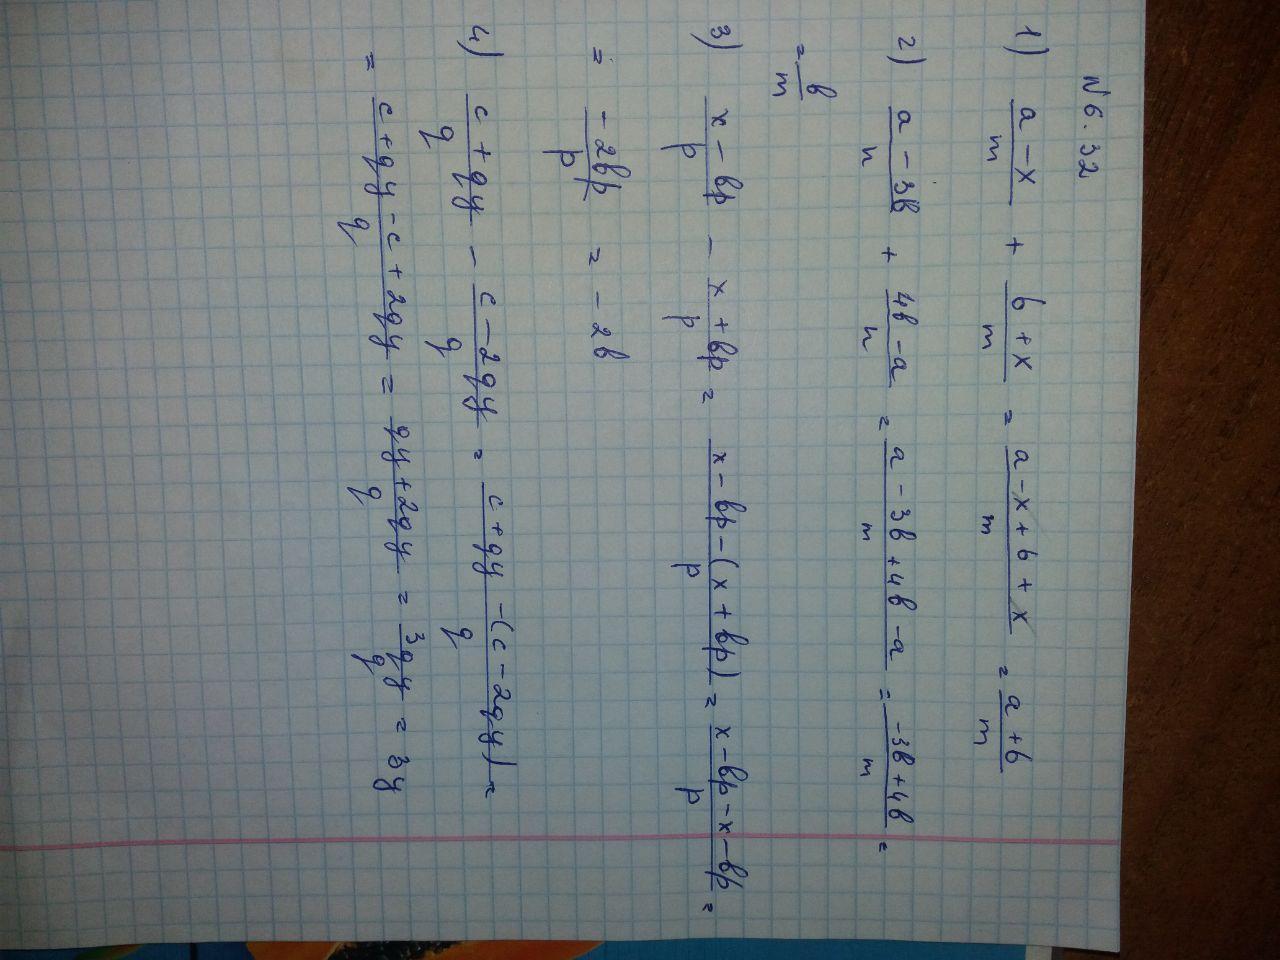 N 6.32
1) (a-x)/m + (b+x)/m = (a-x+b+x)/m = (a+b)/m
2) (a-3b)/n + (4b-a)/n = (a-3b+4b-a)/m = (-3b+4b)/m =
= b/m
3) (x-bp)/p - (x+bp)/p = (x-bp-(x+bp))/p = (x-bp-x-bp)/p =
= (-2bp)/p = -2b
4) (c+qy)/q - (c-2qy)/q = (c+qy-(c-2qy))/q =
= (c+qy-c+2qy)/q = (qy+2qy)/q = 3qy/q = 3y